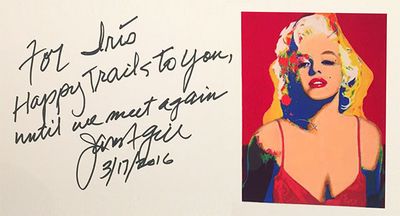 For Iris
Happy Trails to You,
until we meet again
James Gill
3/17/2016